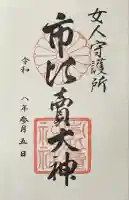 女人守護所
市比賣大神
令和
八年参月五日